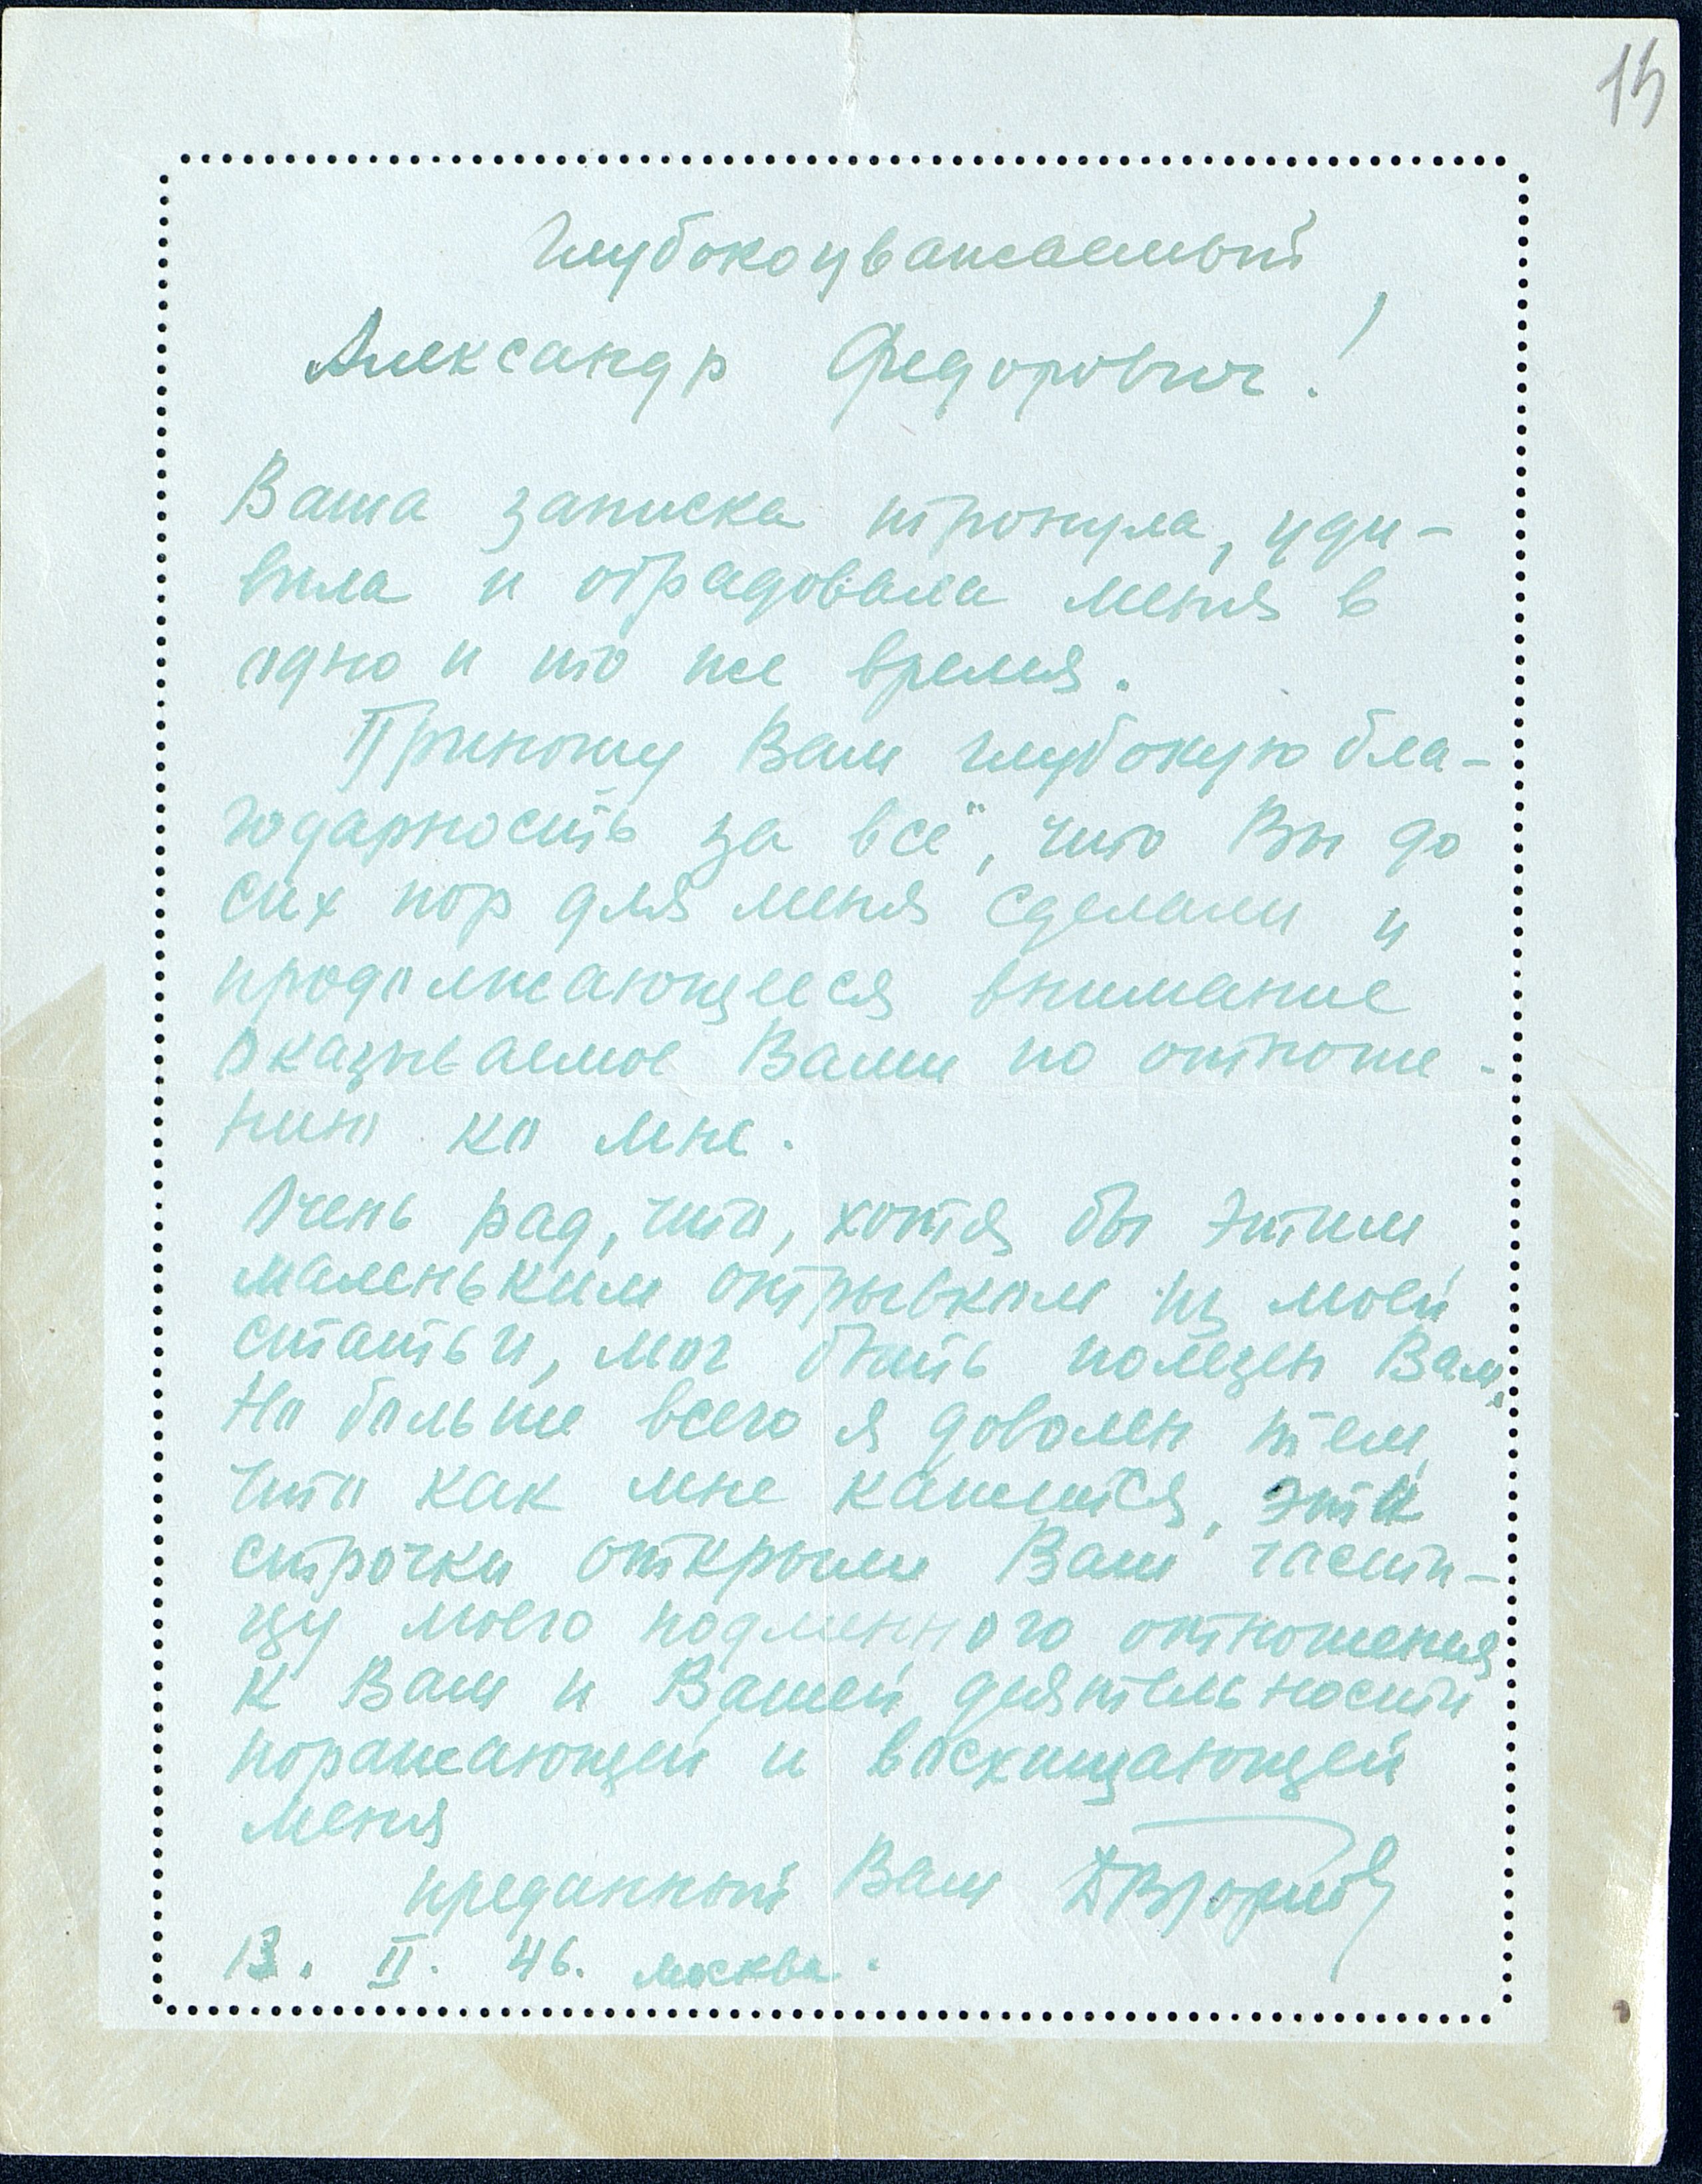 15
Глубокоуважаемый
Александр Федорович!
Ваша записка тронула, уди-
вила и обрадовала меня в
одно и то же время.
Приношу Вам глубокую бла-
годарность за всё, что Вы до
сих пор для меня сделали и
продолжающееся внимание
оказываемое Вами по отноше-
нию ко мне.
Очень рад, что, хотя бы этим
маленьким отрывком из моей
статьи, мог быть полезен Вам.
Но больше всего я доволен тем,
что как мне кажется, эти
строчки открыли Вам части-
цу моего подлинного отношения
к Вам и Вашей деятельности
поражающей и восхищающей
меня
преданный Вам
13. II. 46. Москва.